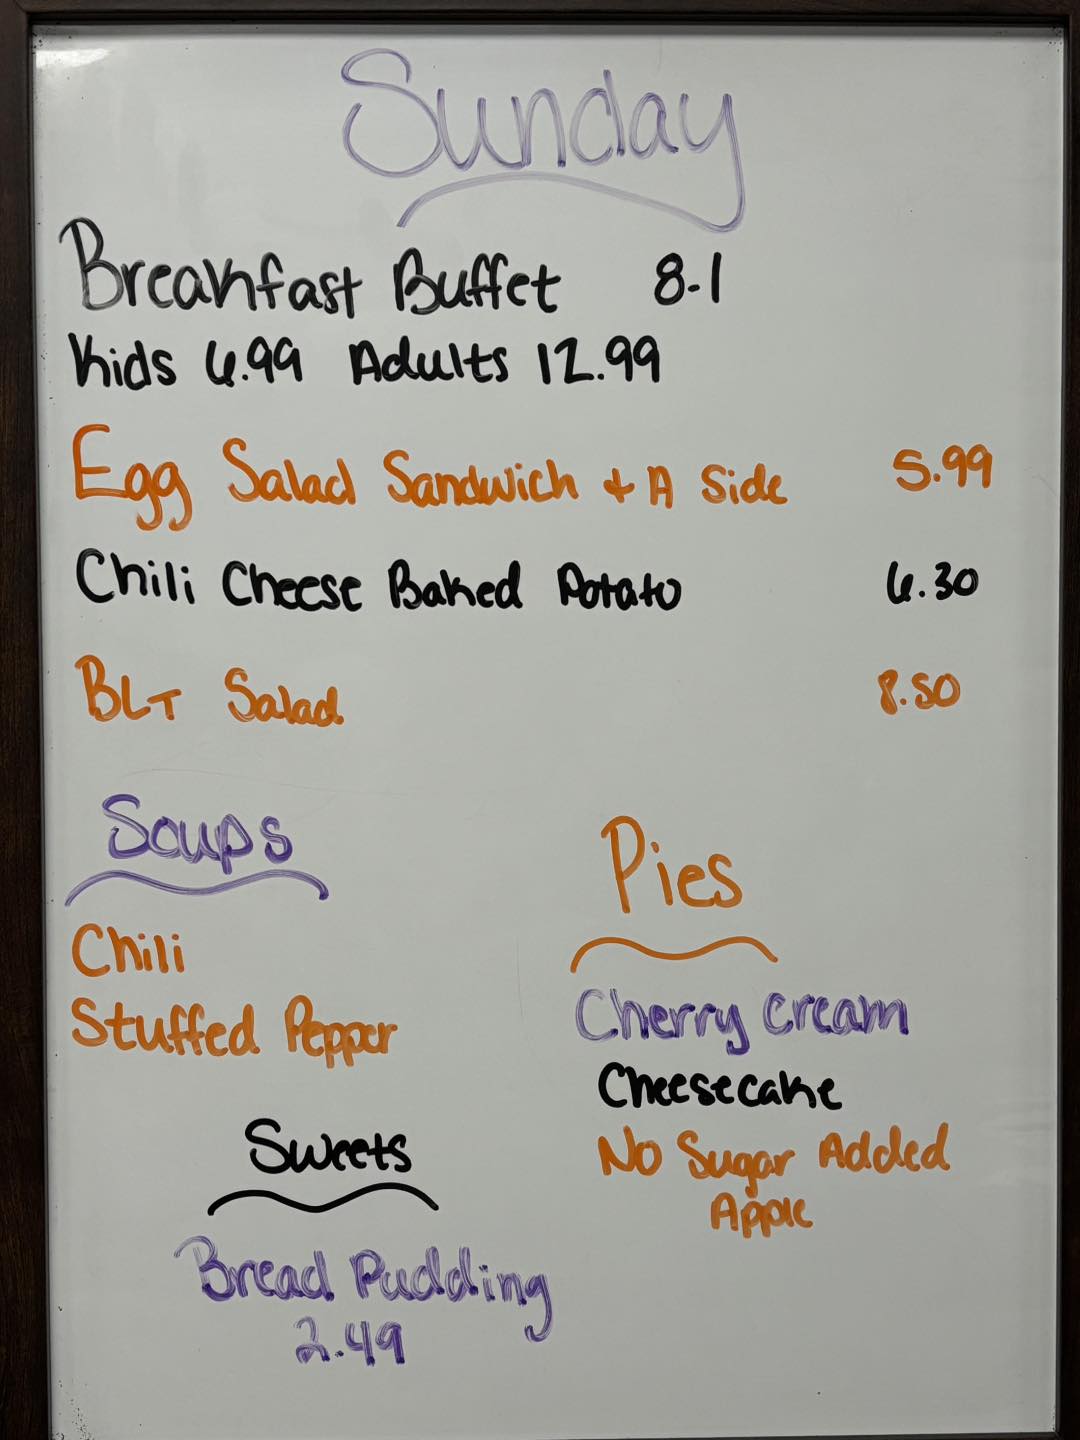 Sunday
Breakfast Buffet 8-1
Kids 6.99 Adults 12.99
Egg Salad Sandwich + A Side 5.99
Chili Cheese Baked Potato 6.30
BLT Salad 8.50
Soups
Chili
Stuffed Pepper
Pies
Cherry Cream
Cheesecake
No Sugar Added
Apple
Sweets
Bread Pudding
2.49